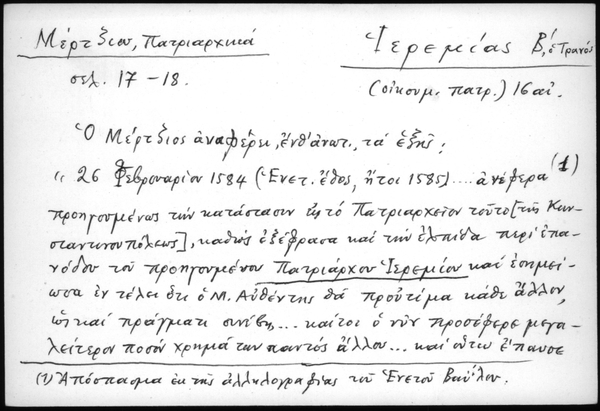 Μέρτζιου, Πατριαρχικά
σελ. 17-18.
Ἱερεμίας Β', ὁ Τρανός
(οἰκουμ. πατρ.) 16 αἰ.
Ὁ Μέρτζιος ἀναφέρει, ἔνθ' ἀνωτ., τά ἑξῆς:
« 26 Φεβρουαρίου 1584 (Ἑνετ. ἔθος, ἤτοι 1585) .... ἀνέφερα (1)
προηγουμένως τήν κατάστασιν εἰς τό Πατριαρχεῖον τοῦτο [τῆς Κων-
σταντινουπόλεως], καθώς ἐξέφρασα καί τήν ἐλπίδα περί ἐπα-
νόδου τοῦ προηγουμένου Πατριάρχου Ἱερεμίου καί ἐσημεί-
ωσα ἐν τέλει ὅτι ὁ Μ. Αὐθέντης θά προὐτίμα κάθε ἄλλον,
ὡς καί πράγματι συνέβη... καίτοι ὁ νῦν προσέφερε μεγα-
λείτερον ποσόν χρημάτων παντός ἄλλου... καί οὕτω ἔπαυσε
(1) Ἀπόσπασμα ἐκ τῆς ἀλληλογραφίας τοῦ Ἑνετοῦ Βαΐλου.